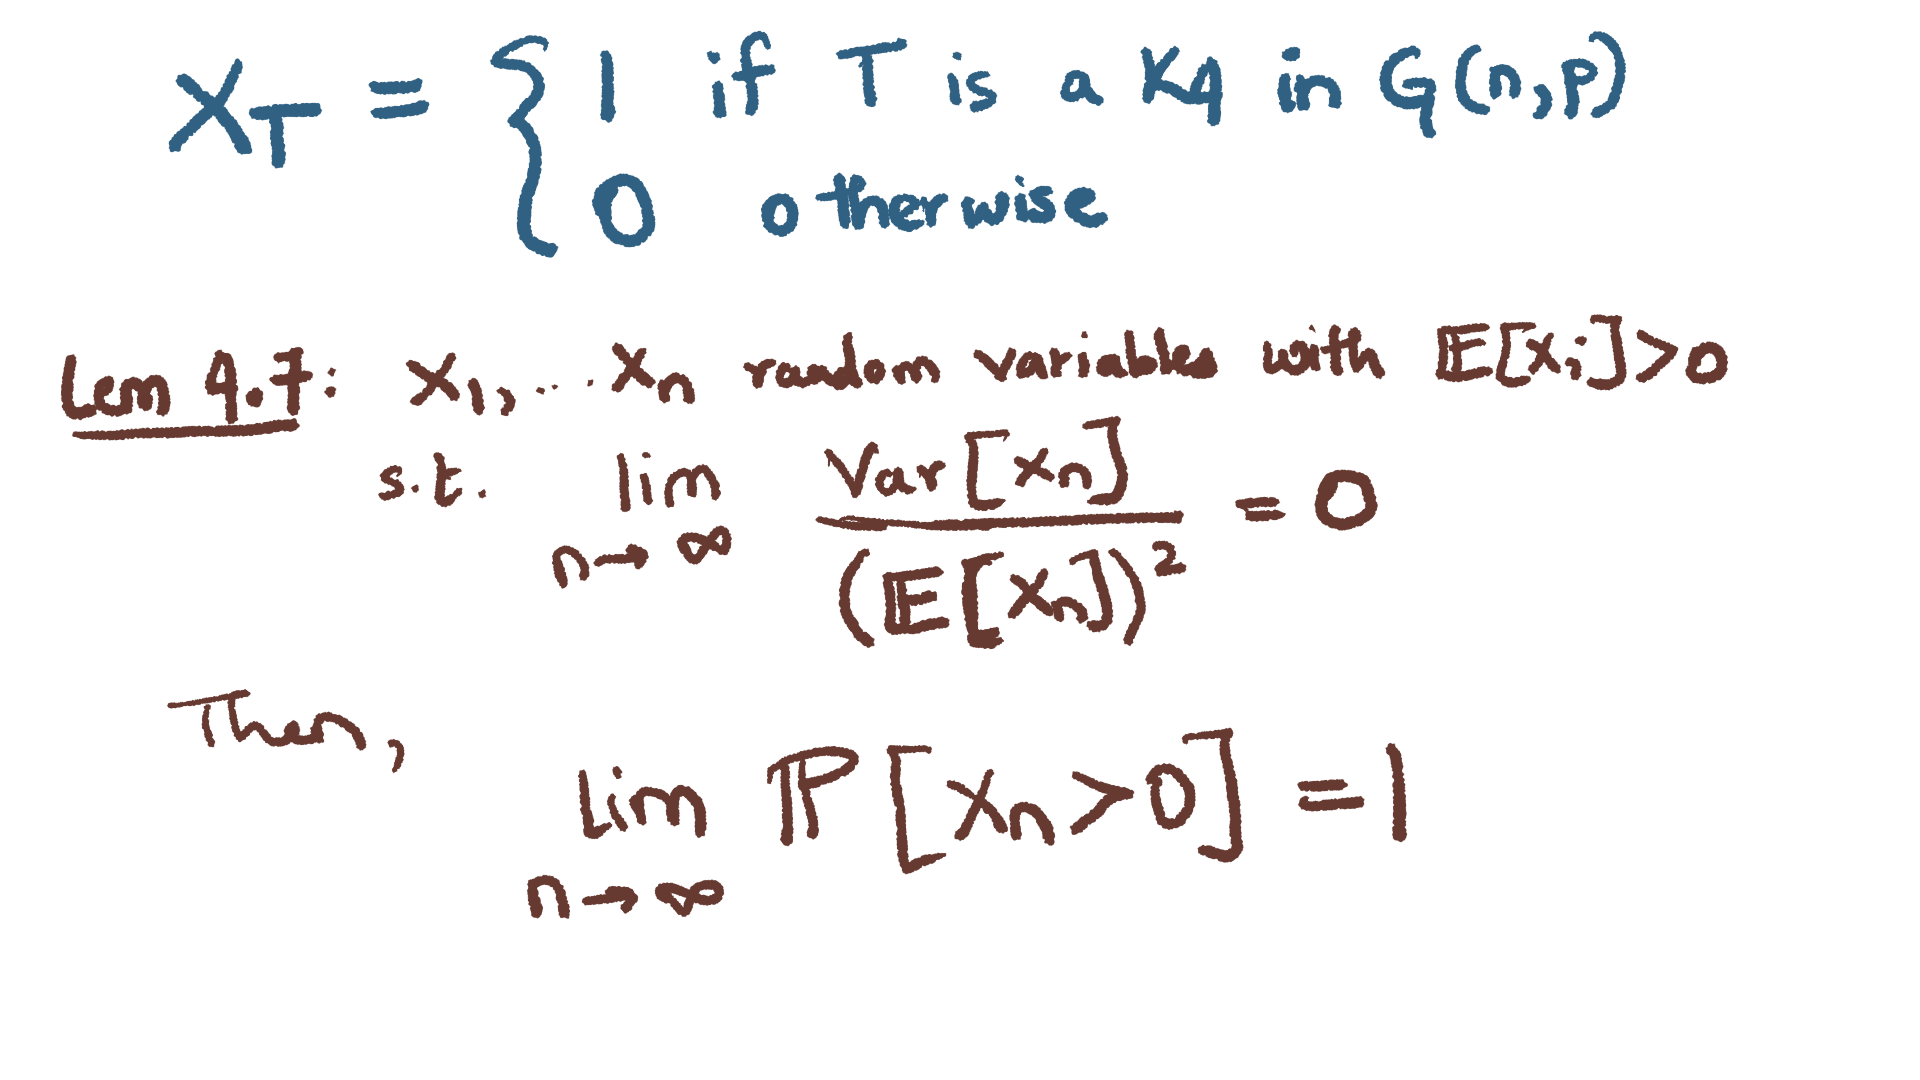 X_T = { 1 if T is a K4 in G(n,p)
0 otherwise
Lem 4.7: X_1, ... X_n random variables with 𝔼[X_i] > 0
s.t. lim_{n→∞} Var[X_n] / (𝔼[X_n])^2 = 0
Then,
lim_{n→∞} ℙ[X_n > 0] = 1